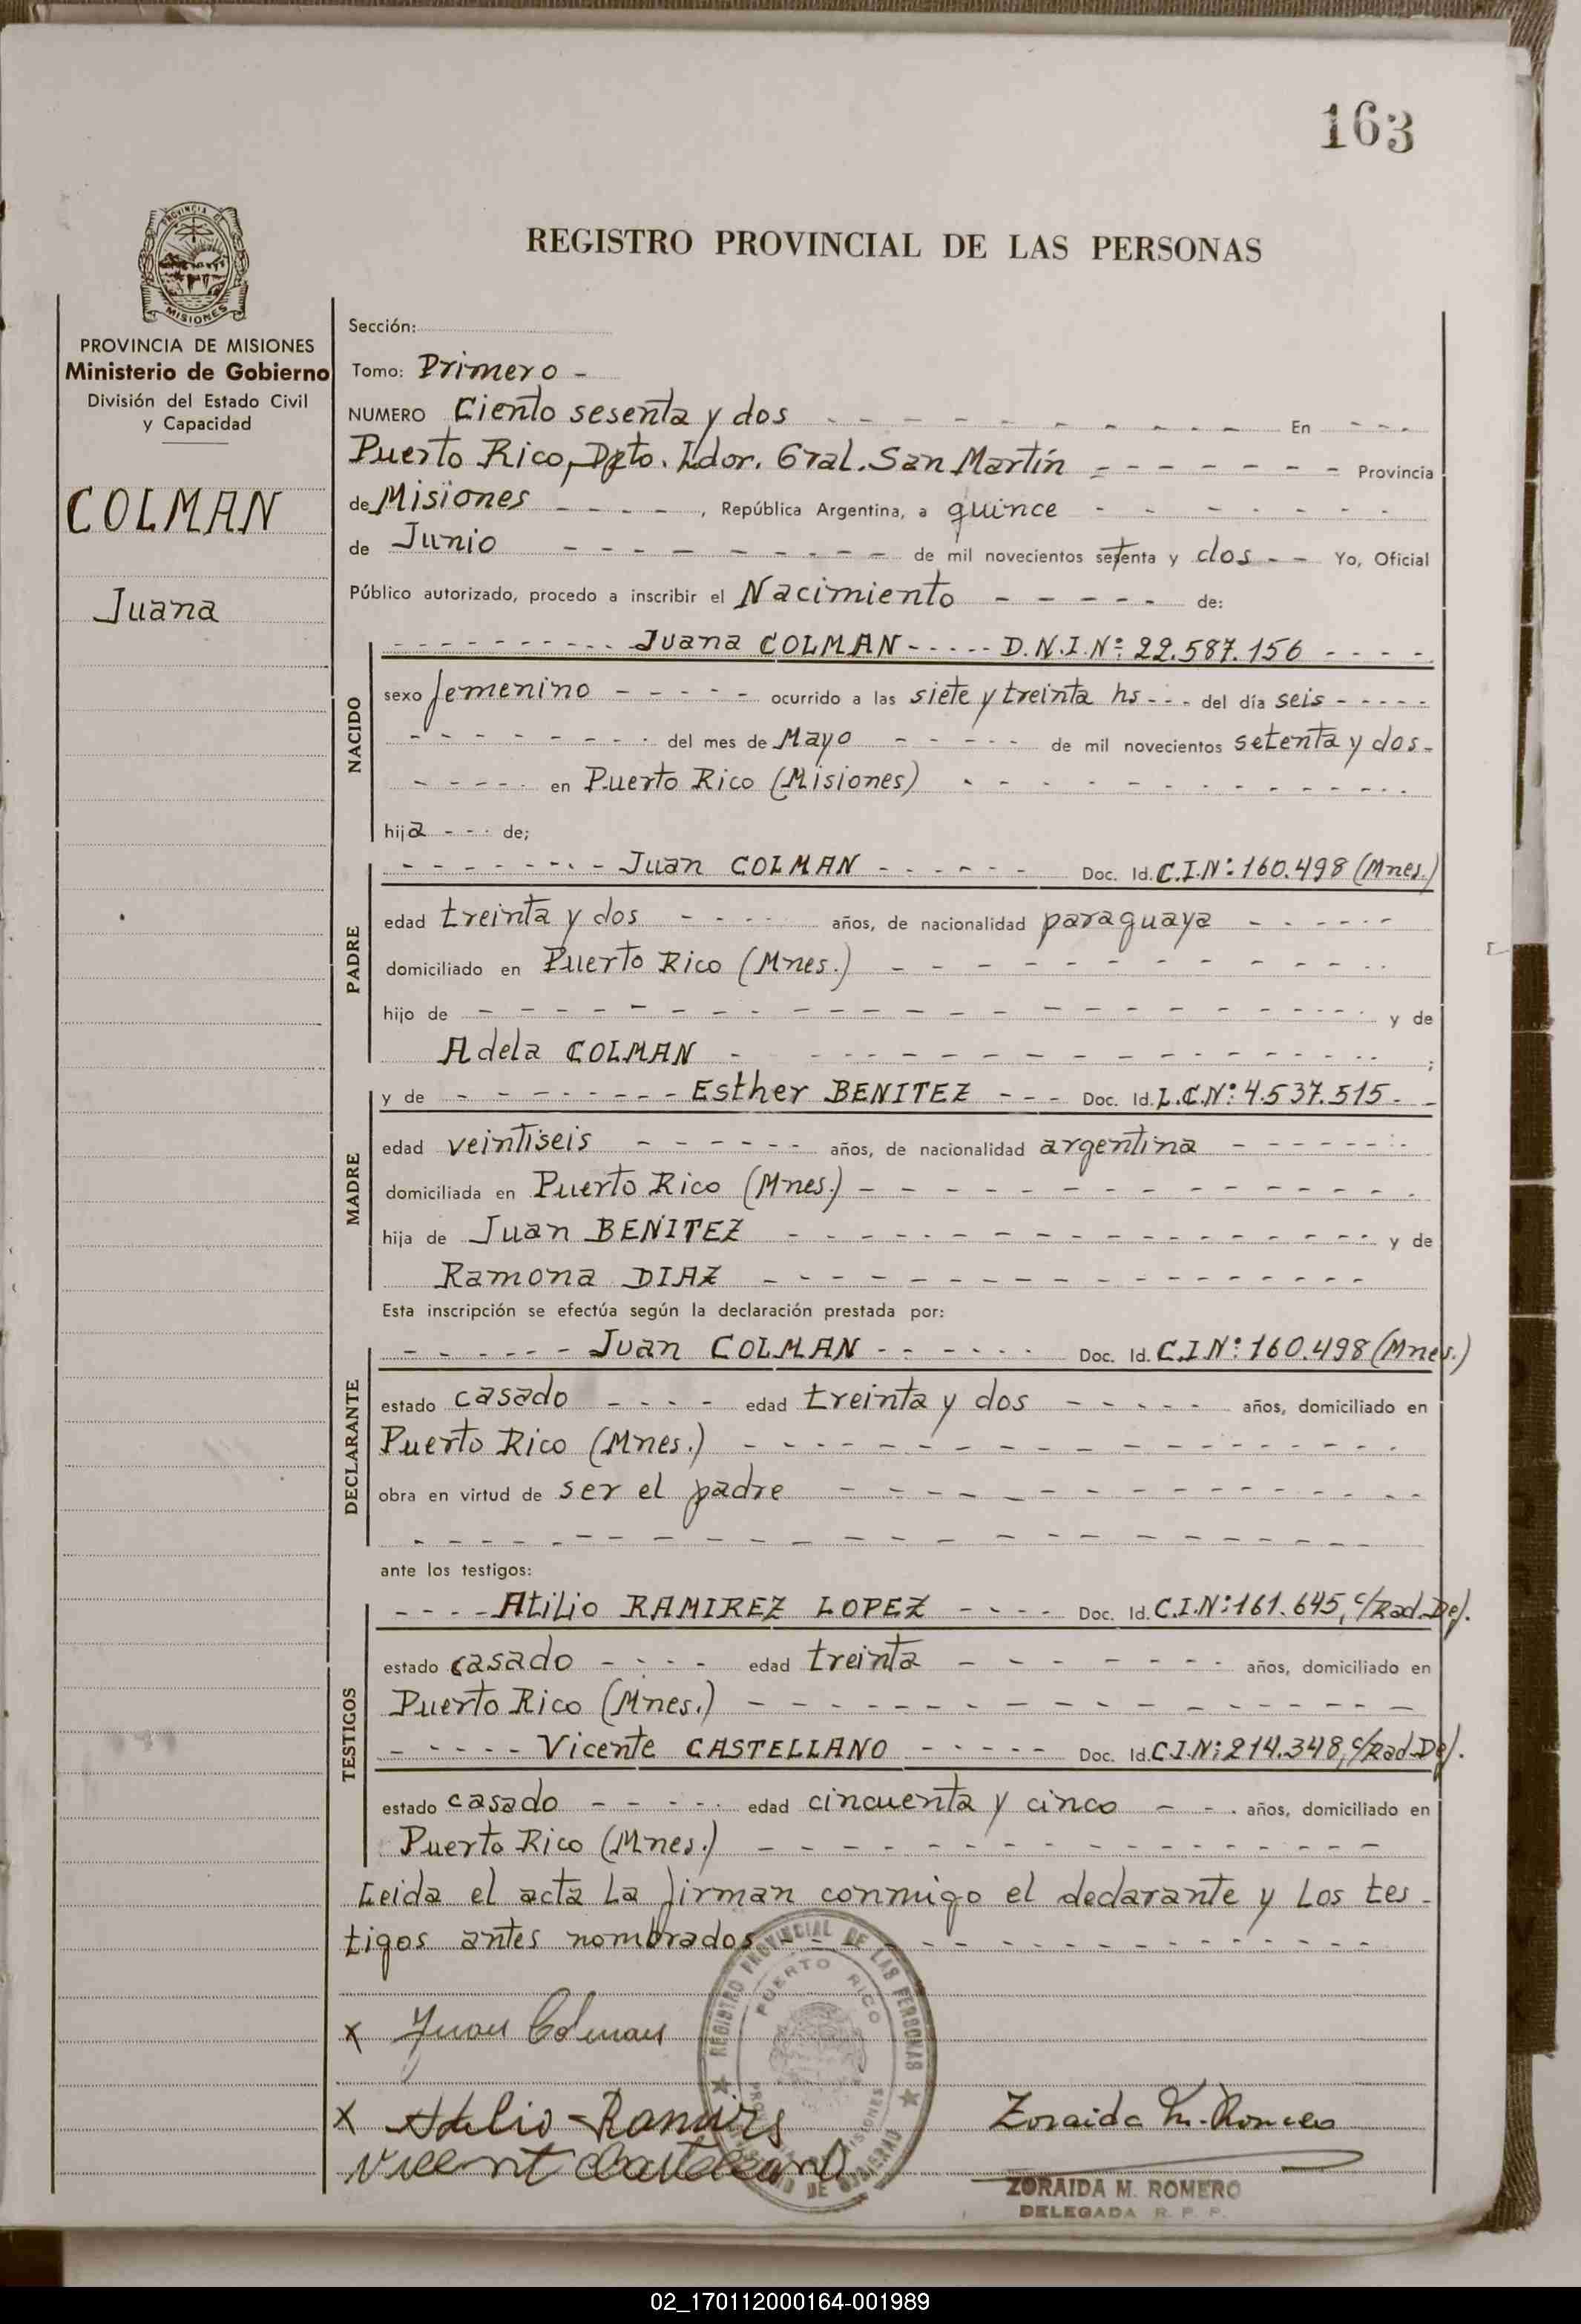 163
REGISTRO PROVINCIAL DE LAS PERSONAS
PROVINCIA DE MISIONES
Ministerio de Gobierno
División del Estado Civil
y Capacidad
COLMAN
Juana
Sección:
Tomo: Primero -
NUMERO Ciento sesenta y dos - - - - - - - - - - En - - - -
Puerto Rico, Dpto. Ldor. Gral. San Martín - - - - - - - Provincia
de Misiones - - - - , República Argentina, a quince - - - - - - - -
de Junio - - - - - - - - - de mil novecientos setenta y dos - - Yo, Oficial
Público autorizado, procedo a inscribir el Nacimiento - - - - - de:
NACIDO
- - - - - - - - - - Juana COLMAN - - - - - D.N.I.Nº: 22.587.156 - - - -
sexo femenino - - - - - ocurrido a las siete y treinta hs - - - del día seis - - - - -
- - - - - - - - del mes de Mayo - - - - - de mil novecientos setenta y dos -
- - - - - en Puerto Rico (Misiones) - - - - - - - - - - - - -
hija - - - de;
PADRE
- - - - - - - - Juan COLMAN - - - - - - Doc. Id. C.I.Nº: 160.498 (Mnes.)
edad treinta y dos - - - - - años, de nacionalidad paraguaya - - - - - -
domiciliado en Puerto Rico (Mnes.) - - - - - - - - - - - -
hijo de - - - - - - - - - - - - - - - - - - - - y de
Adela COLMAN - - - - - - - - - - - - - - - ;
MADRE
y de - - - - - - - - Esther BENITEZ - - - Doc. Id. L.C.Nº: 4.537.515 - -
edad veintiseis - - - - - - años, de nacionalidad argentina - - - - - - -
domiciliada en Puerto Rico (Mnes.) - - - - - - - - - - - - - -
hija de Juan BENITEZ - - - - - - - - - - - - - - - y de
Ramona DIAZ - - - - - - - - - - - - - - - -
Esta inscripción se efectúa según la declaración prestada por:
DECLARANTE
- - - - - - Juan COLMAN - - - - - - Doc. Id. C.I.Nº: 160.498 (Mnes.)
estado casado - - - - edad treinta y dos - - - - - años, domiciliado en
Puerto Rico (Mnes.) - - - - - - - - - - - - - - - -
obra en virtud de ser el padre - - - - - - - - - - - - - -
- - - - - - - - - - - - - - - - - - - - - -
ante los testigos:
TESTIGOS
- - - - Atilio RAMIREZ LOPEZ - - - - Doc. Id. C.I.Nº: 161.645, c/Rad.Def.
estado casado - - - - edad treinta - - - - - - - - años, domiciliado en
Puerto Rico (Mnes.) - - - - - - - - - - - - - - -
- - - - - Vicente CASTELLANO - - - - - Doc. Id. C.I.Nº: 214.348, c/Rad.Def.
estado casado - - - - - edad cincuenta y cinco - - - años, domiciliado en
Puerto Rico (Mnes.) - - - - - - - - - - - - - - -
Leida el acta la firman conmigo el declarante y los tes -
tigos antes nombrados - - - - - - - - - - - - - -
REGISTRO PROVINCIAL DE LAS PERSONAS
PUERTO RICO
MISIONES
x Juan Colman
x Atilio Ramirs
Vicent Castellano
Zoraida M. Romero
ZORAIDA M. ROMERO
DELEGADA R. P. P.
02_170112000164-001989